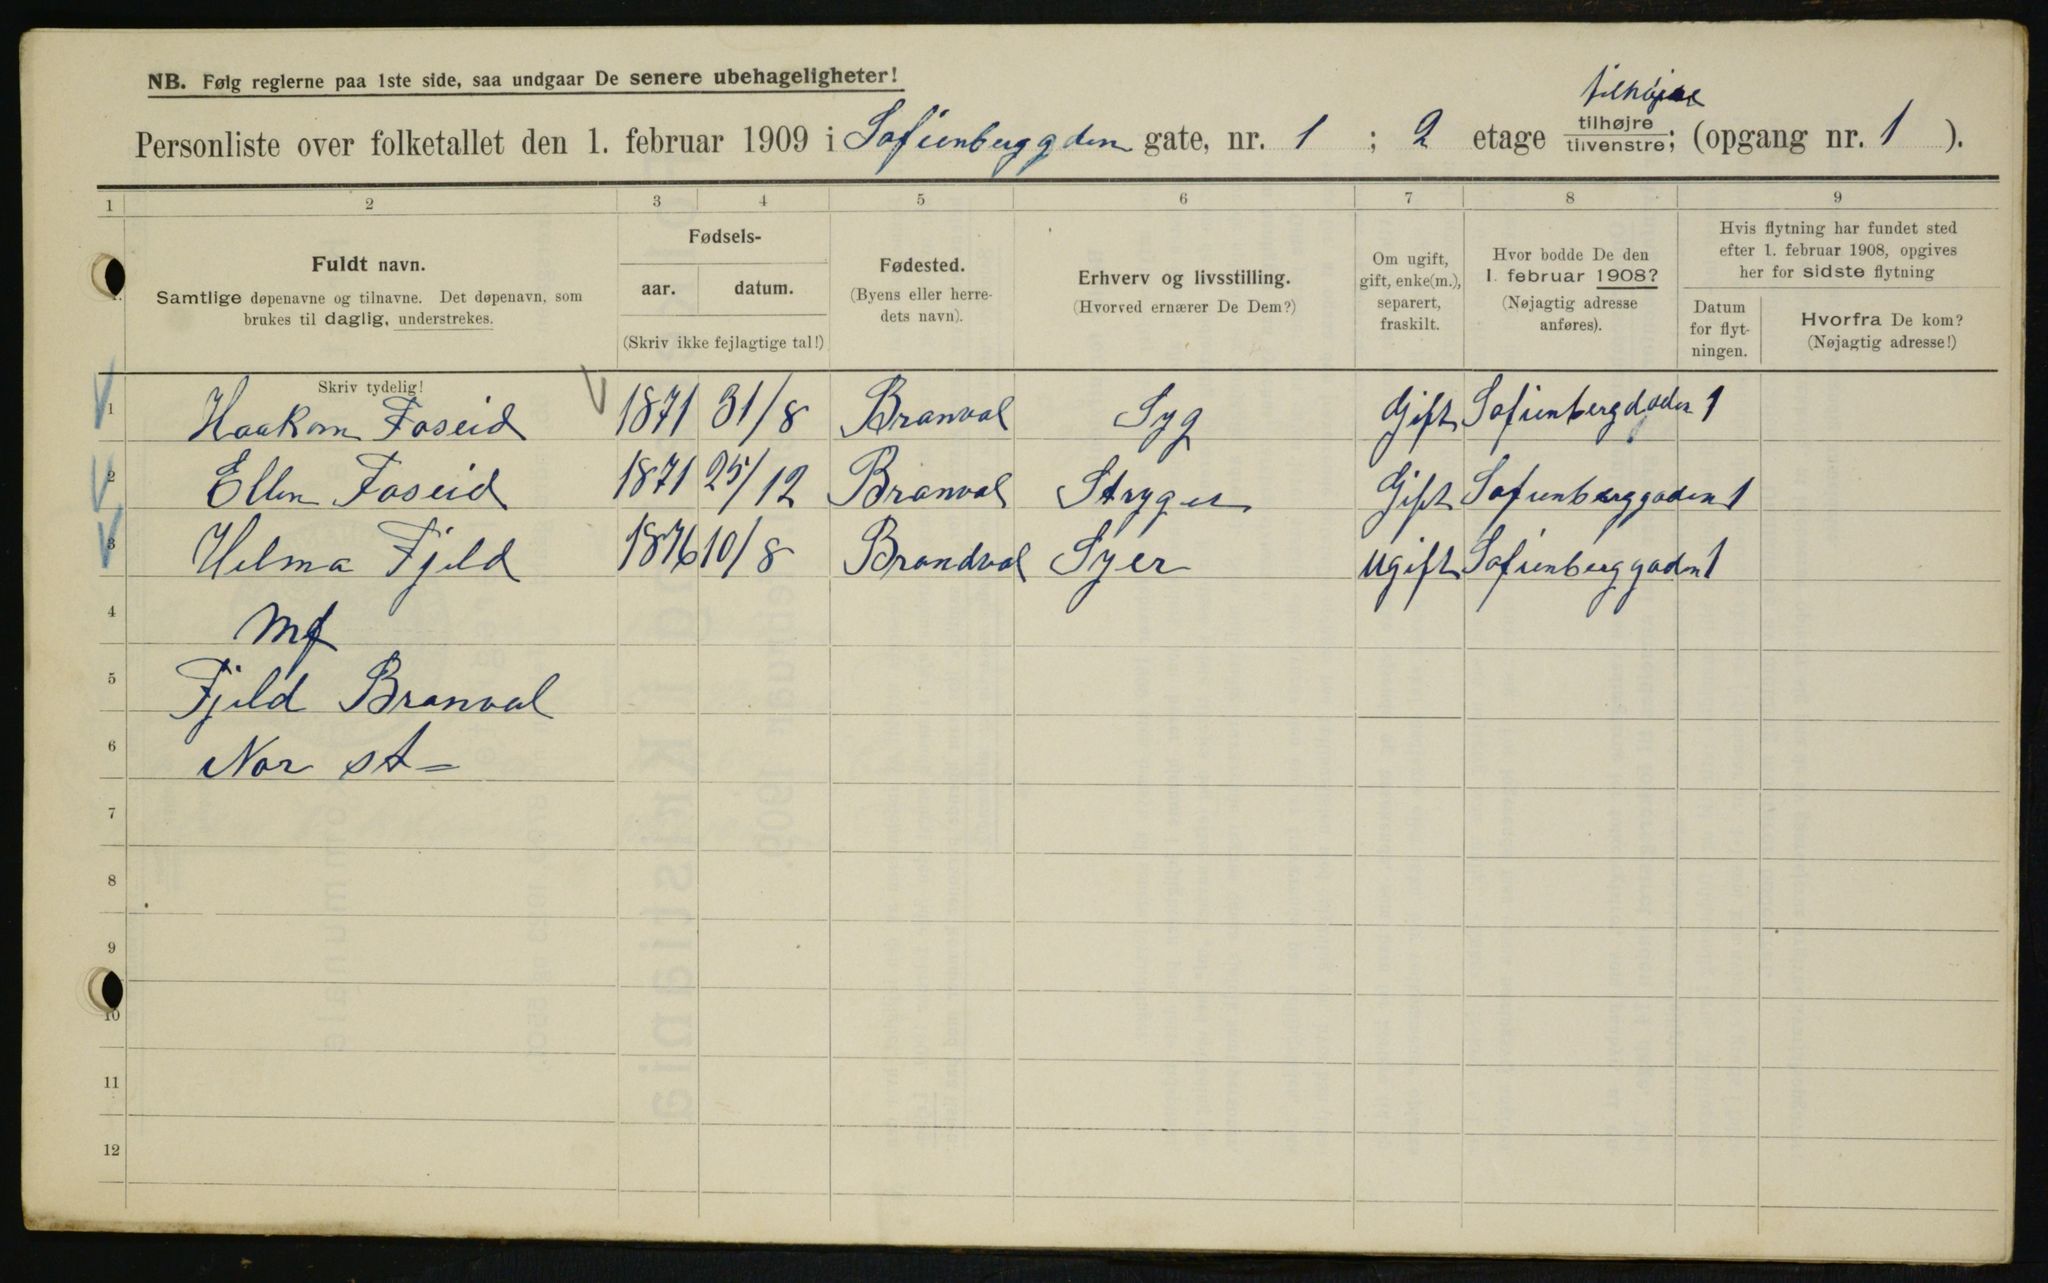 NB. Følg reglerne paa 1ste side, saa undgaar De senere ubehageligheter!
tilhøire
Personliste over folketallet den 1. februar 1909 i Sofienberggden gate, nr. 1 ; 2 etage tilhøjre tilvenstre; (opgang nr. 1 ).
1 2 3 4 5 6 7 8 9
Fuldt navn.
Samtlige døpenavne og tilnavne. Det døpenavn, som
brukes til daglig, understrekes.
Skriv tydelig!
Fødsels-
aar. datum.
(Skriv ikke fejlagtige tal!)
Fødested.
(Byens eller herre-
dets navn).
Erhverv og livsstilling.
(Hvorved ernærer De Dem?)
Om ugift,
gift, enke(m.),
separert,
fraskilt.
Hvor bodde De den
1. februar 1908?
(Nøjagtig adresse
anføres).
Hvis flytning har fundet sted
efter 1. februar 1908, opgives
her for sidste flytning
Datum
for flyt-
ningen.
Hvorfra De kom?
(Nøjagtig adresse!)
1 Haakon Foseid 1871 31/8 Branval Syg Gift Sofienberggaden 1
2 Ellen Foseid 1871 25/12 Branval Stryger Gift Sofienberggaden 1
3 Hilma Fjeld 1876 10/8 Brandval Syer Ugift Sofienberggaden 1
4 Mf
5 Fjeld Branval
6 Nor st
7
8
9
10
11
12